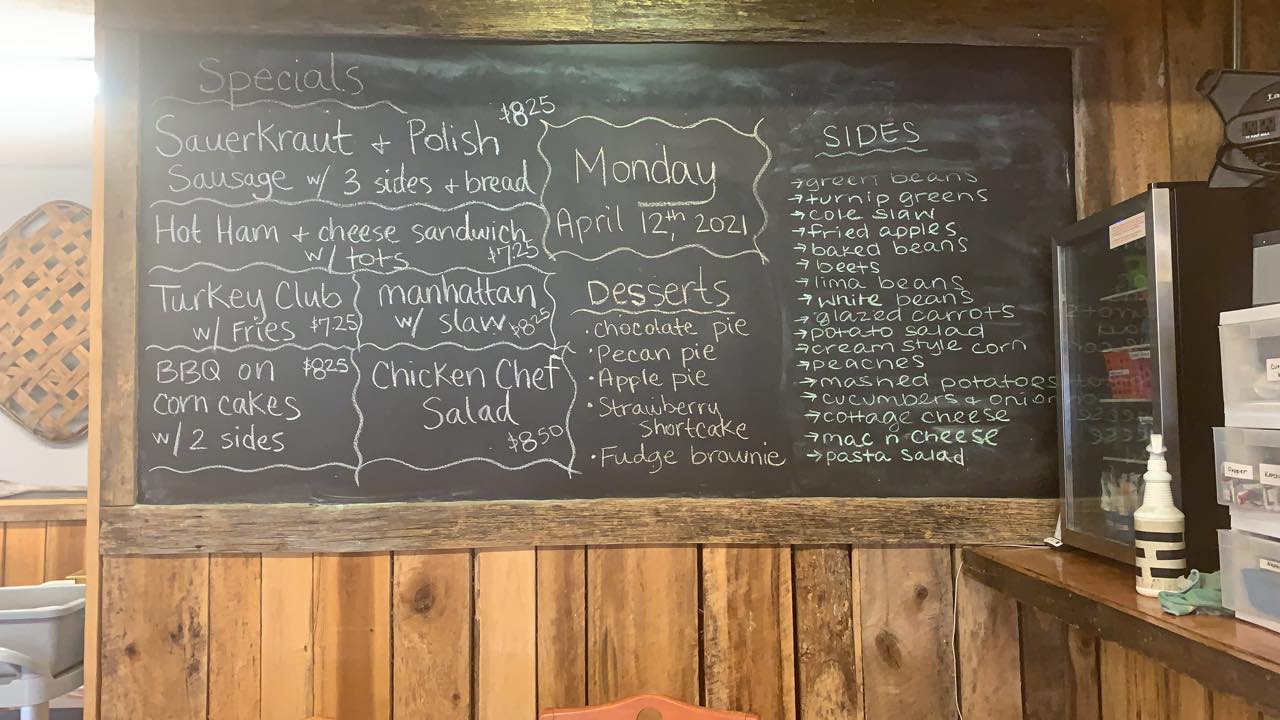 Specials
Sauerkraut + Polish $8.25
Sausage w/ 3 sides + bread
Hot Ham + cheese sandwich
w/ tots $7.25
Turkey Club
w/ Fries $7.25
manhattan
w/ slaw $8.25
BBQ on $8.25
corn cakes
w/ 2 sides
Chicken Chef
Salad
$8.50
Monday
April 12th, 2021
Desserts
• chocolate pie
• Pecan pie
• Apple pie
• Strawberry
shortcake
• Fudge brownie
SIDES
→ green beans
→ turnip greens
→ cole slaw
→ fried apples
→ baked beans
→ beets
→ lima beans
→ white beans
→ glazed carrots
→ potato salad
→ cream style corn
→ peaches
→ mashed potatoes
→ cucumbers & onion
→ cottage cheese
→ mac n cheese
→ pasta salad